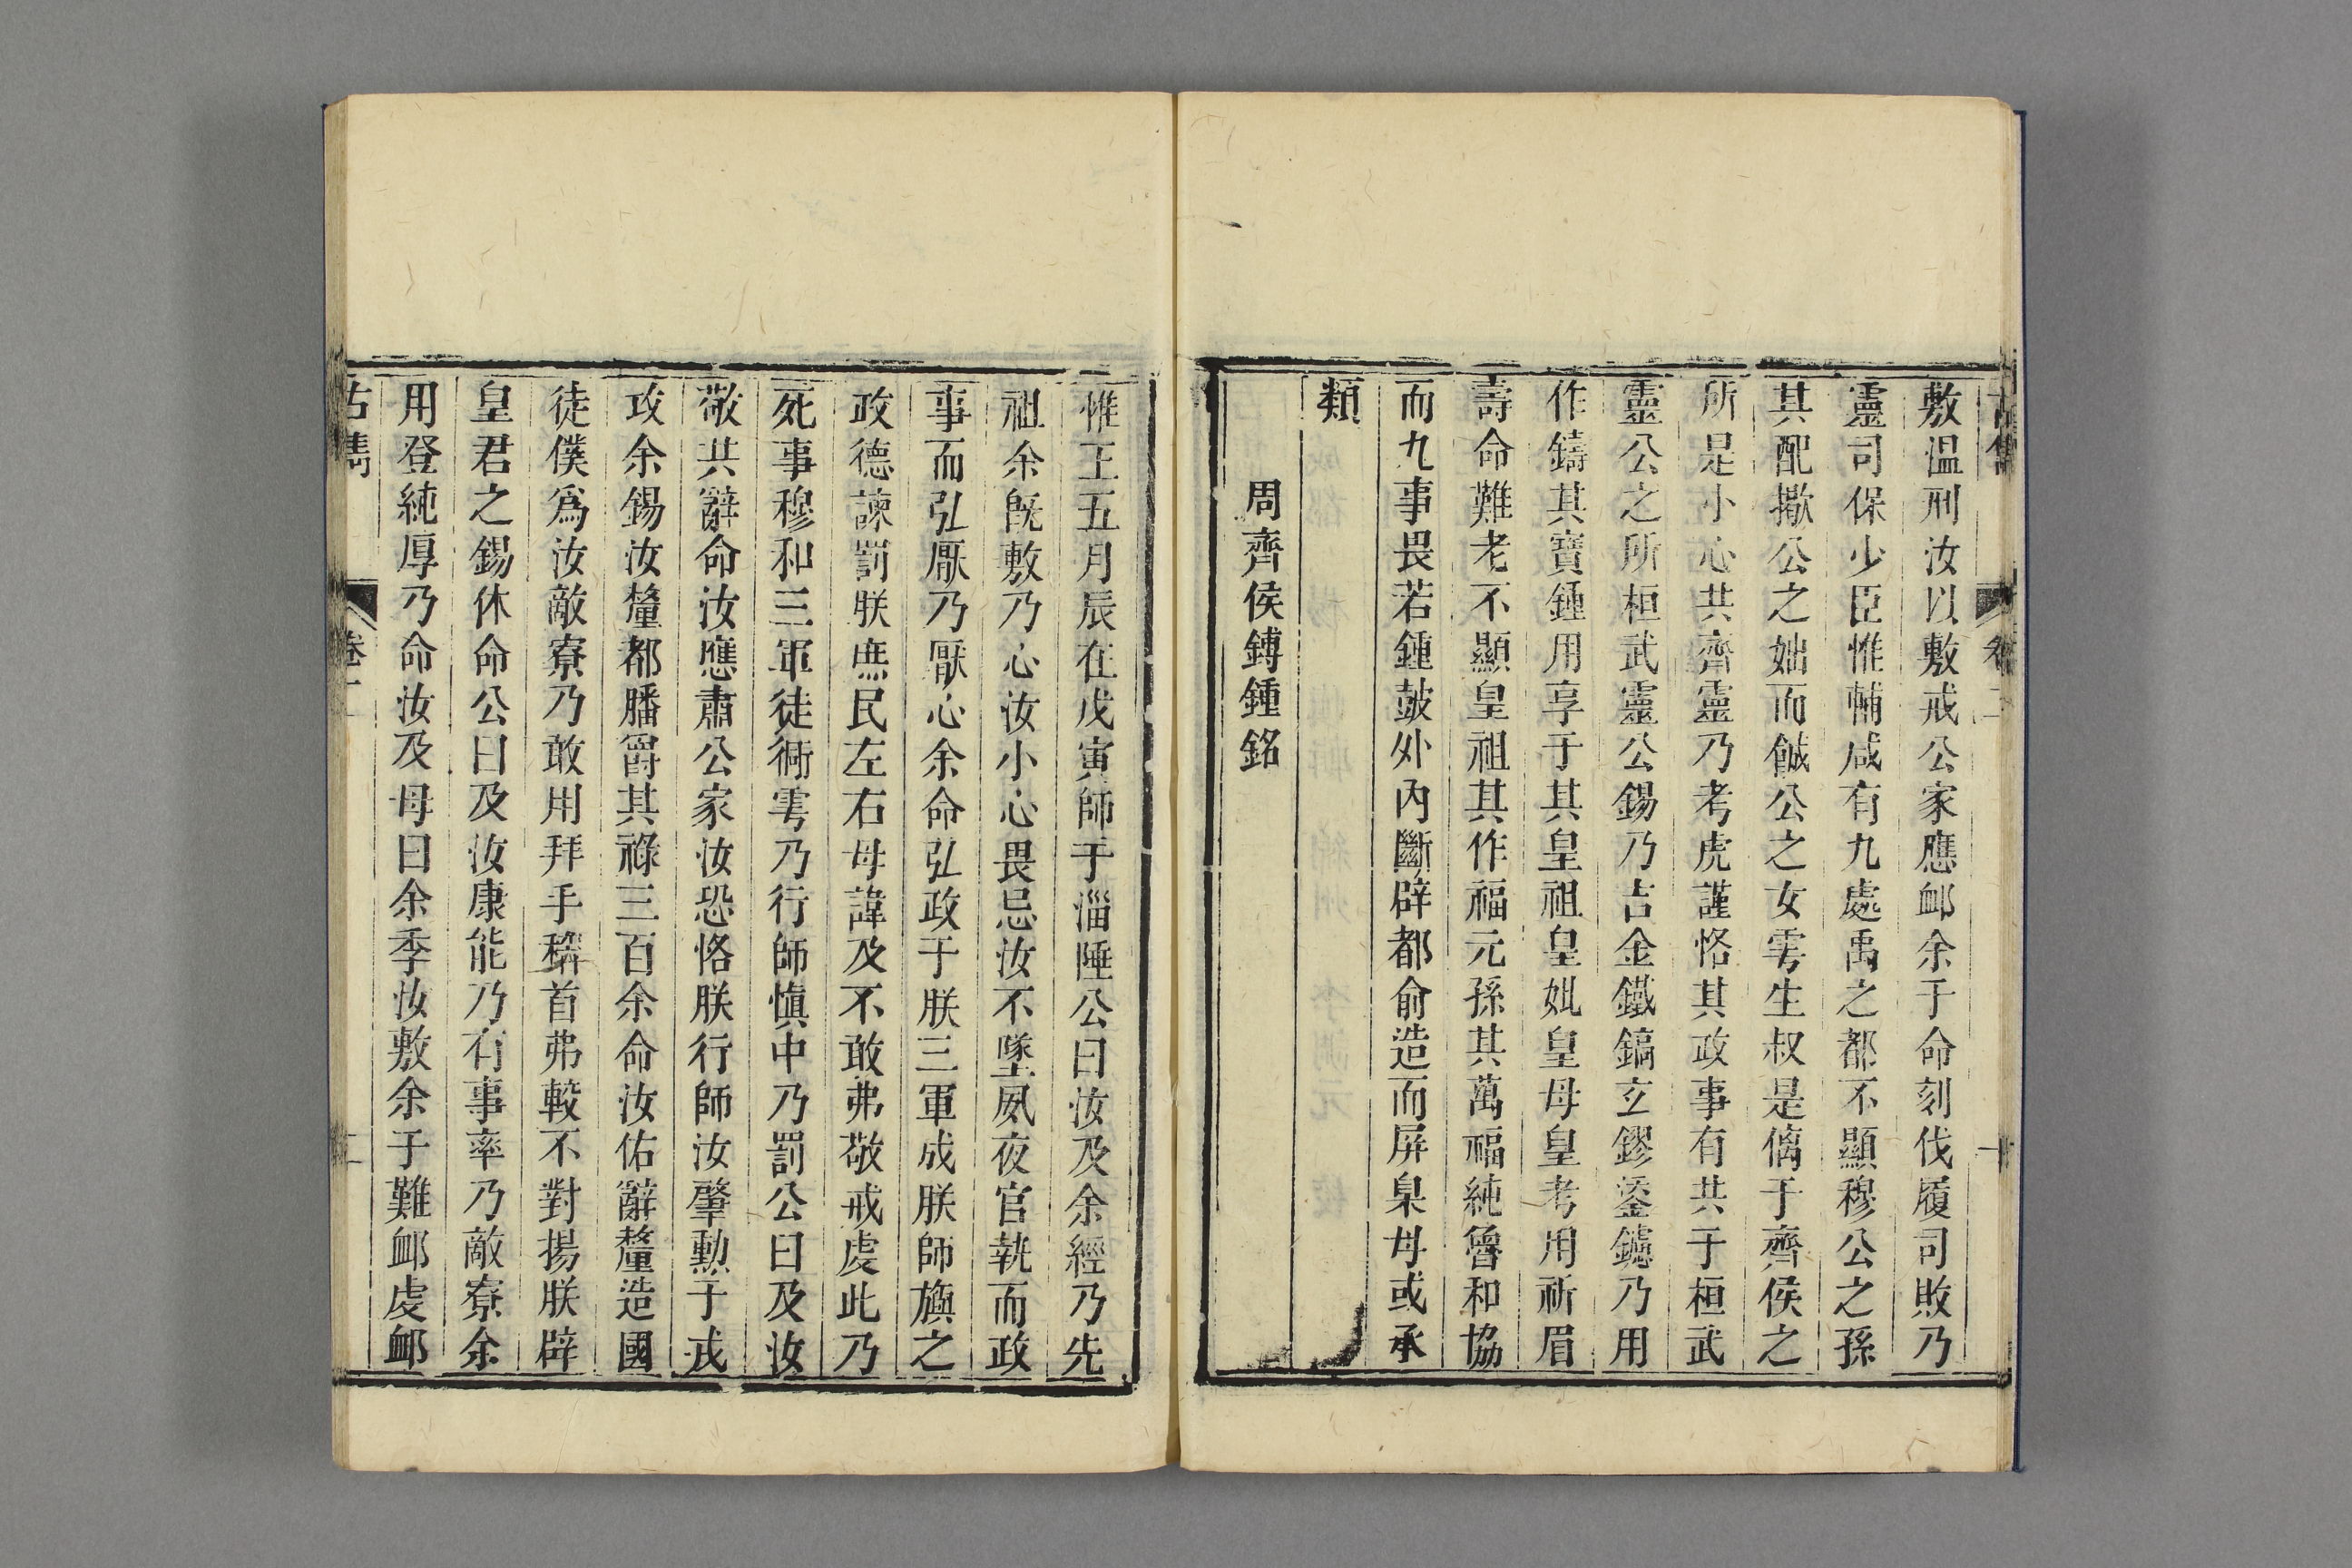 敷温刑汝以敷戒公家應衈余于命刻伐履司敗乃
靈司保少臣惟輔咸有九處禹之都不顯穆公之孫
其配㩆公之妯而餯公之女雩生叔是倄于齊侯之
所是小心共齊靈乃考虎謹恪其政事有共于桓武
靈公之所桓武靈公錫乃吉金鐵鎬玄鏐鋚鑪乃用
作鑄其寶鍾用享于其皇祖皇妣皇母皇考用祈眉
壽命難老不顯皇祖其作福元孫其萬福純魯和協
而九事畏若鍾皷外內斷辟都俞造而屏臬毋或承
類
周齊侯鎛鍾銘
惟王五月辰在戊寅師于淄陲公曰汝及余經乃先
祖余旣敷乃心汝小心畏忌汝不墜夙夜官執而政
事而弘厭乃厭心余命弘政于朕三軍成朕師旟之
政德諫罰朕庶民左右毋諱及不敢弗敬戒虔此乃
死事穆和三軍徒衕雩乃行師愼中乃罰公曰及汝
敬共辭命汝應肅公家汝恐恪朕行師汝肇勳于戎
攻余錫汝釐都膰爵其祿三百余命汝佑辭釐造國
徒僕爲汝敵寮乃敢用拜手稽首弗較不對揚朕辟
皇君之錫休命公曰及汝康能乃有事率乃敵寮余
用登純厚乃命汝及毋曰余季汝敷余于難衈虔衈
古雋
卷二